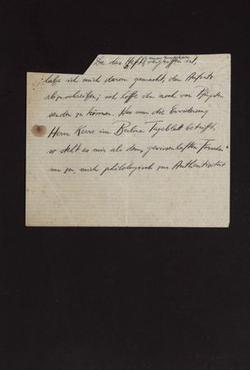 Da das Heft vergriffen ist,
habe ich mich daran gemacht, den Aufsatz
abzuschreiben; ich hoffe ihn noch vor Pfingsten
senden zu können. Was nun die Erwiderung
Herrn Kerrs im Berliner Tageblatt betrifft,
so steht es mir als dem gewissenhaften
an zu, mich philologisch zur Authentizität